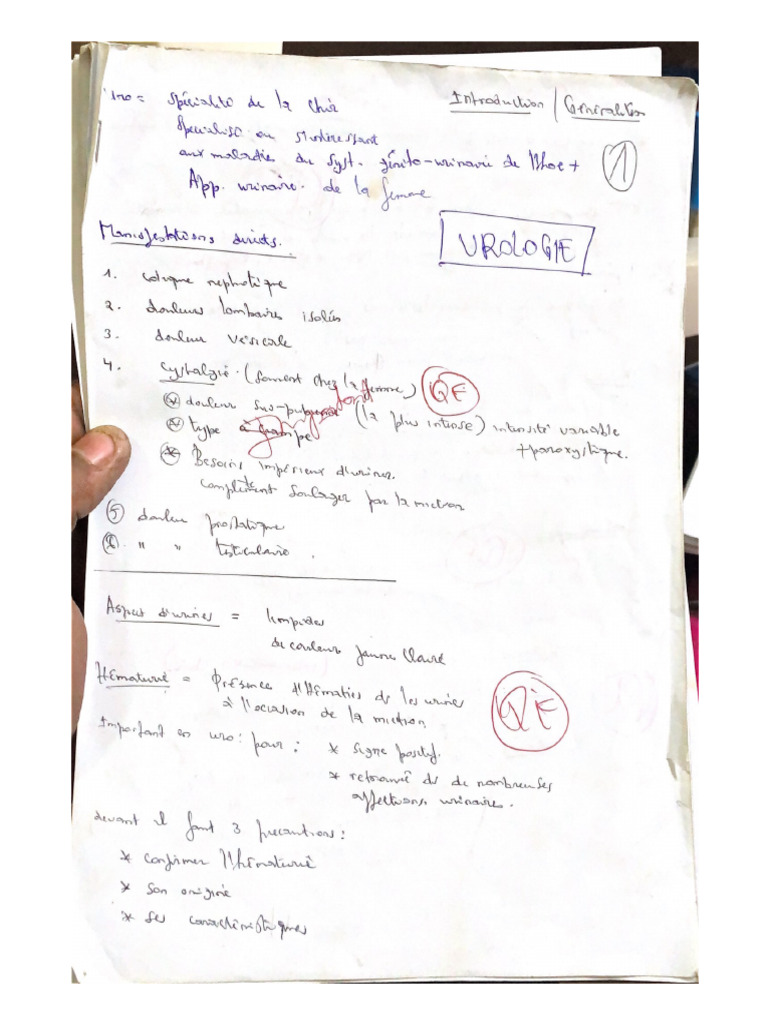 Introduction / Généralités
uro = spécialité de la chir
Spécialisé en s'intéressant
aux maladies du syst. génito-urinaire de l'Hoe +
App. urinaire de la femme
1
UROLOGIE
Manifestations directs.
1. colique nephrétique
2. douleurs lombaires isolés
3. douleur vésicale
4. Cystalgie. (souvent chez la femme) QE
* douleur sus-pubienne (la plus intense) intensité variable
* type à crampe + paroxystique.
* Besoins impérieux d'uriner
complèment soulager par la miction
5 douleur prostatique
6. " " testiculaire.
Aspects d'urines = limpides
de couleur jaune claire
Hématurie = Présence d'Hématies ds les urines
à l'occasion de la miction QE
Important en uro: pour: * Signe positif.
* retrouvé ds de nombreuses
affections urinaires.
devant il faut 3 précautions:
* confirmer l'hématurie
* Son origine
* Ses caractéristiques